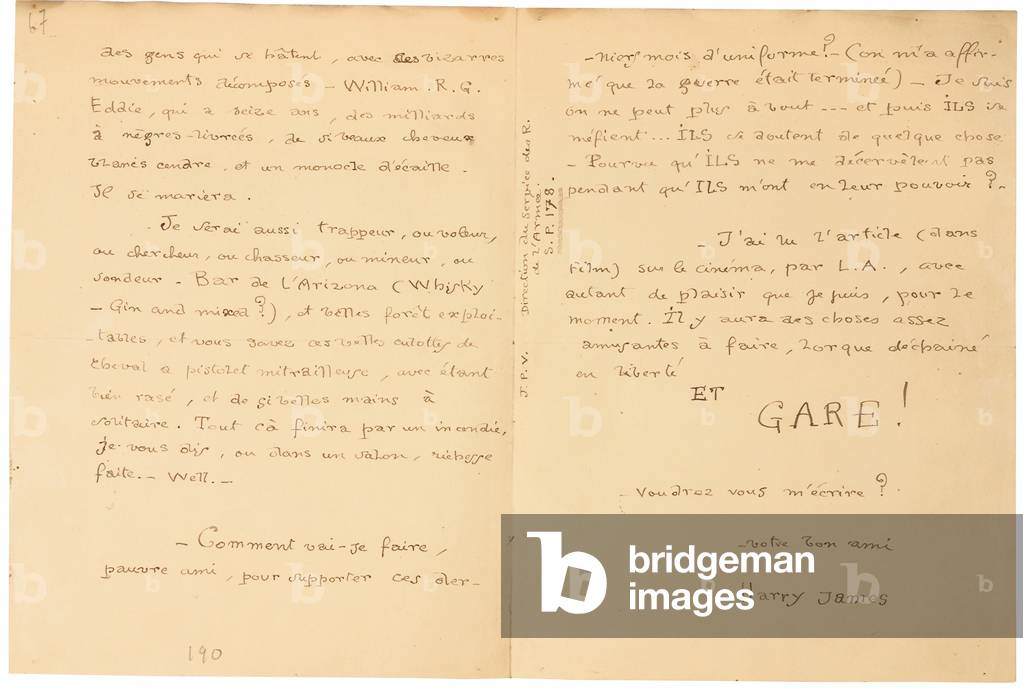 67
des gens qui se hâtent, avec des bizarres
mouvements décomposés - William. R.G.
Eddie, qui a seize ans, des milliards
à nègres-livrées, de si beaux cheveux
blancs cendre, et un monocle d'écaille.
Il se mariera.
- Je serai aussi trappeur, ou voleur,
ou chercheur, ou chasseur, ou mineur, ou
sondeur - Bar de L'Arizona (Whisky
- Gin and mixed?), et belles forêt exploi-
-tables, et vous savez ces belles culottes de
cheval a pistolet mitrailleuse, avec étant
bien rasé, et de si belles mains à
solitaire. Tout çà finira par un incendie,
je vous dis, ou dans un salon, richesse
faite. - Well. -
- Comment vai-je faire,
pauvre ami, pour supporter ces der-
190
J.P.V. Direction du Service des R.
de L'Armée.
S.P. 178.
-niers mois d'uniforme? - (on m'a affir-
mé que la guerre était terminée) - Je suis
on ne peut plus à bout --- et puis ILS se
méfient... ILS se doutent de quelque chose
- Pourvu qu'ILS ne me décervèlent pas
pendant qu'ILS m'ont en leur pouvoir? -
- J'ai lu l'article (dans
Film) sur le cinéma, par L.A., avec
autant de plaisir que je puis, pour le
moment. Il y aura des choses assez
amusantes à faire, lorque déchainé
en liberté
ET
GARE!
- Voudrez vous m'écrire?
- votre bon ami
Harry James
b bridgeman
images